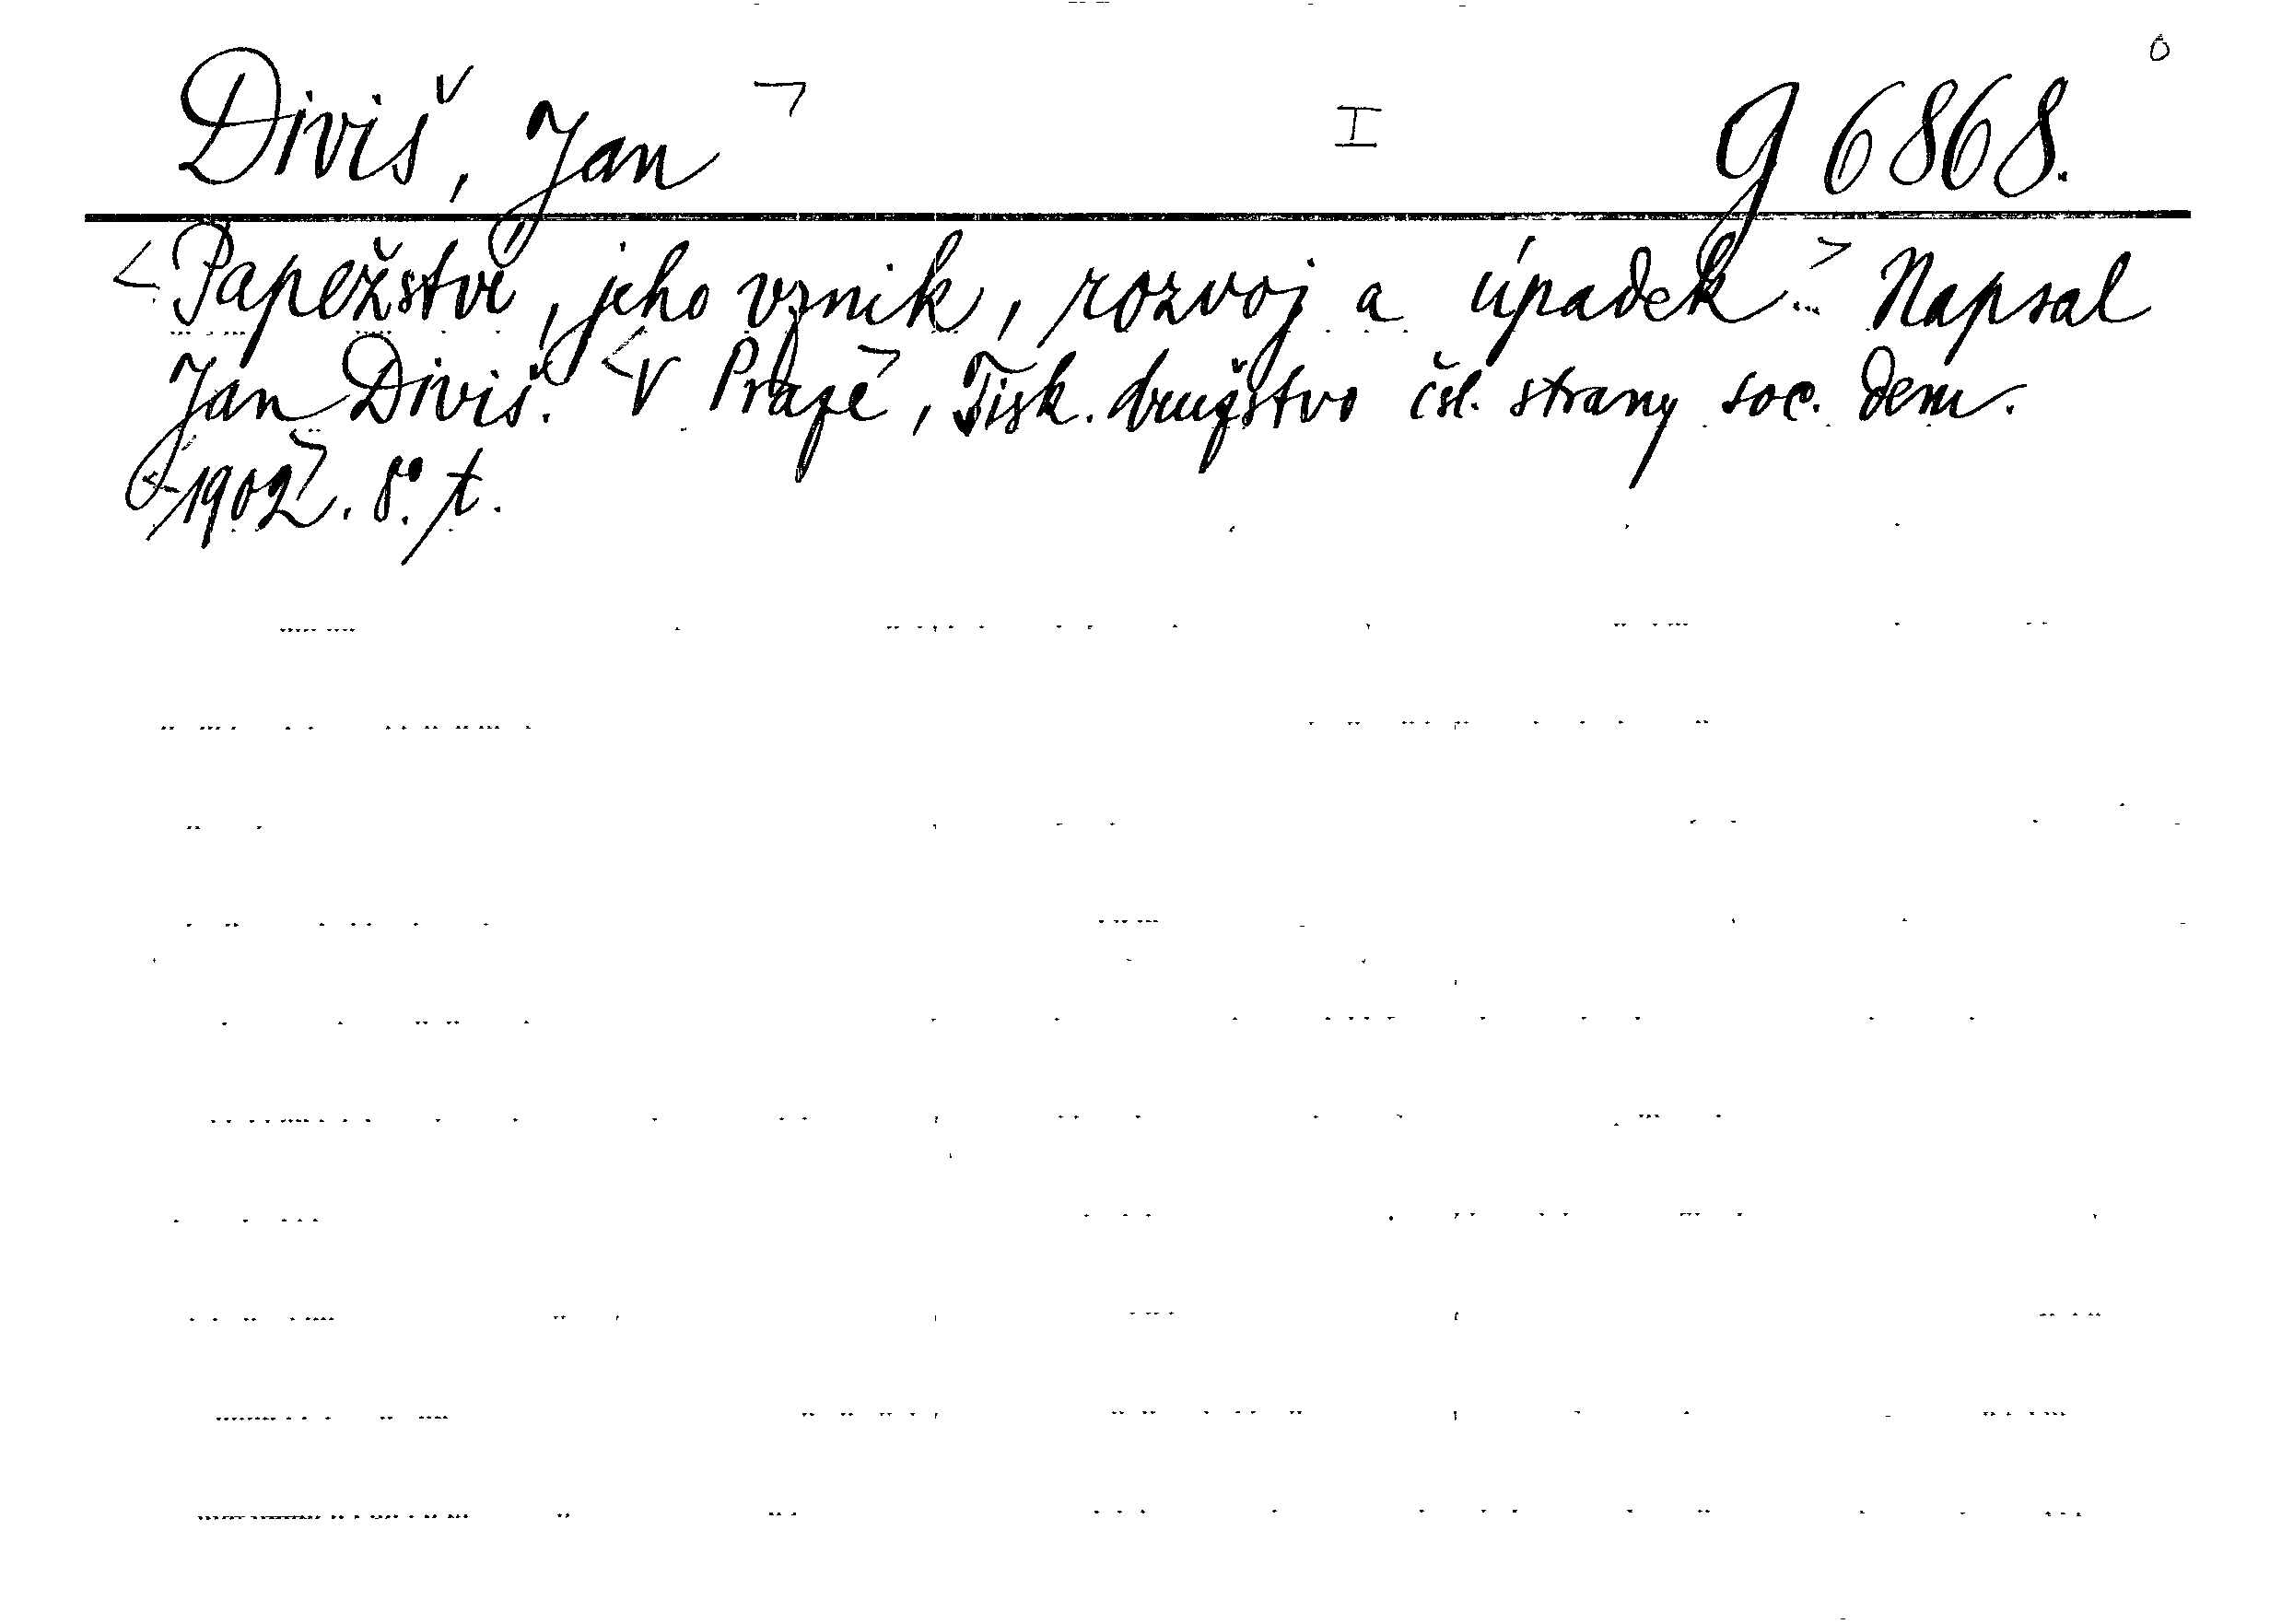 Diviš, Jan I g 6868.
<Papežství, jeho vznik, rozvoj a úpadek.> Napsal
Jan Diviš. <V Praze, Tisk. družstvo čsl. strany soc. dem.
<1902>. 8° t.